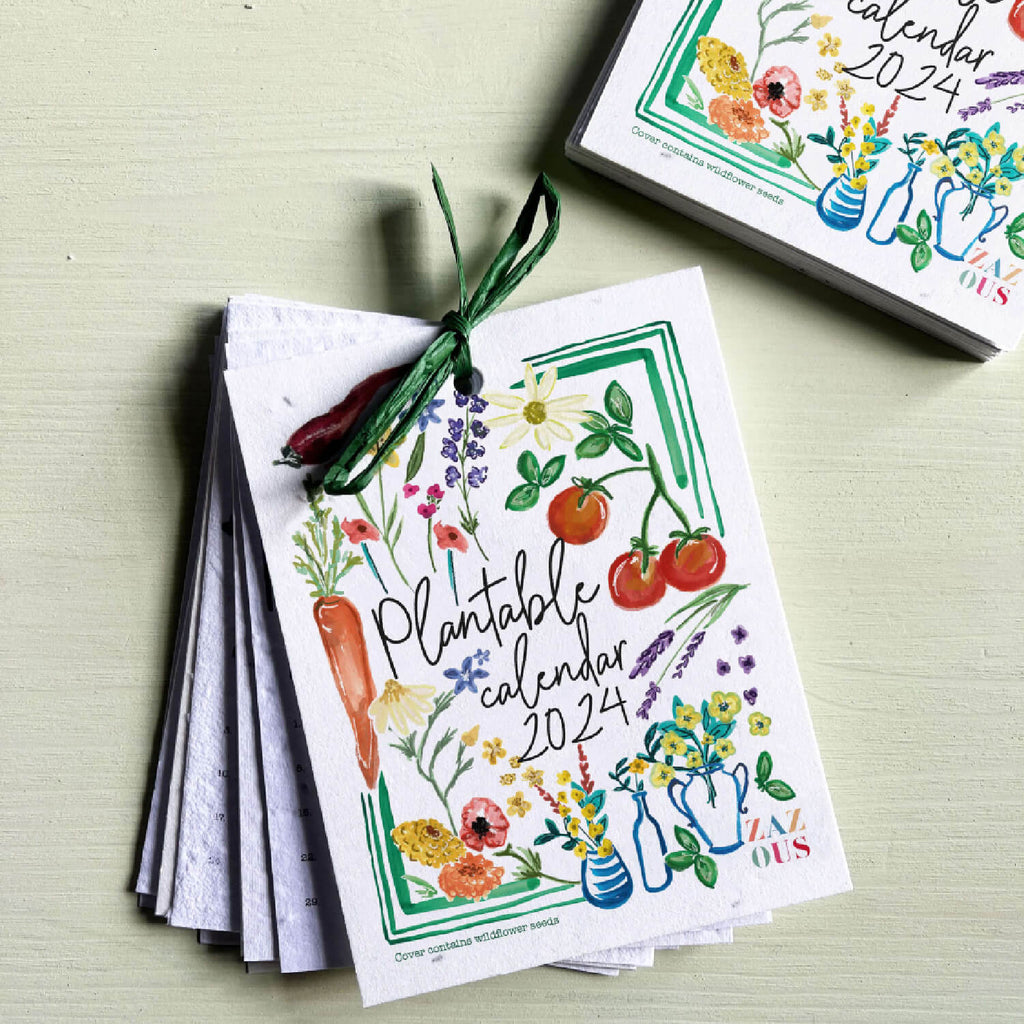 calendar
2024
Cover contains wildflower seeds
ZAZ
OUS
Plantable
calendar
2024
ZAZ
OUS
Cover contains wildflower seeds
10.
17.
29.